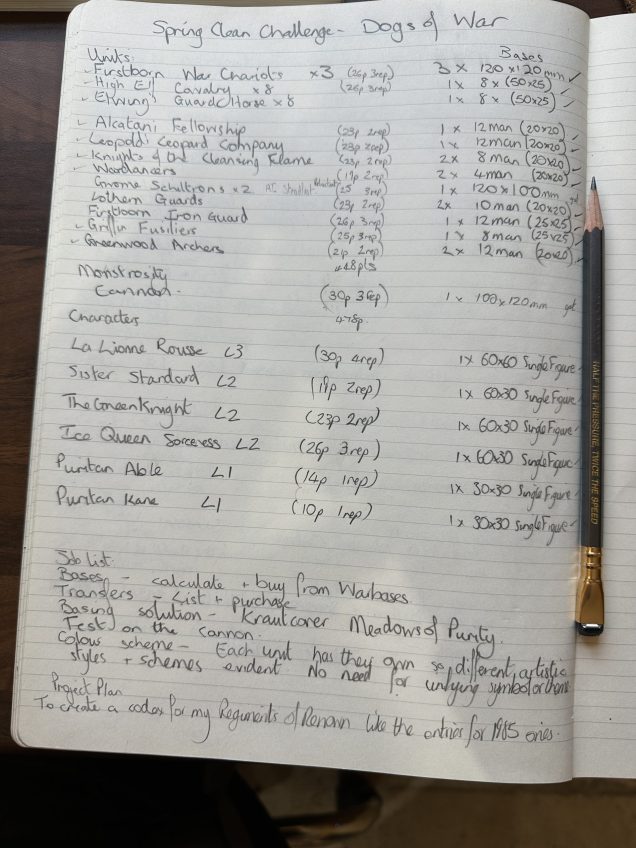 Spring Clean Challenge - Dogs of War
Bases
Units
Firstborn War Chariots x3 (26p 3rep) 3 x 120 x 120mm
High Elf Cavalry x8 (26p 3rep) 1x 8 x (50x25)
Guard Horse x 8 1 x 8 x (50x25)
Alcatani Fellowship (23p 2rep) 1 x 12man (20x20)
Leopold's Leopard Company (23p 2rep) 1x 12man (20x20)
Knights of the Cleansing Flame (23p 2rep) 2x 8 man (20x20)
Wardancers (19p 2rep) 2 x 4man (20x20)
Gnome Schiltrons x2 3rep) 1x 120x100mm
Lothern Guards (23p 2rep) 2x 10 man (20x20)
Firstborn Iron Guard (26p 3rep) 1 x 12man (25x25)
Griffin Fusiliers (25p 3rep) 1 x 8man (25x25)
Greenwood Archers (21p 2rep) 2 x 12man (20x20)
448pts
Monstrosity
Cannon. (30p 3rep) 1 x 100x120mm
Characters 478p
La Lionne Rousse L3 (30p 4rep) 1x 60x60 Single Figure
Sister Standard L2 (18p 2rep) 1x 60x30 Single Figure
The Green Knight L2 (23p 2rep) 1x 60x30 Single Figure
Ice Queen Sorceress L2 (26p 3rep) 1x 60x30 Single Figure
Puritan Able L1 (14p 1rep) 1x 30x30 Single Figure
Puritan Kane L1 (10p 1rep) 1 x 30x30 Single Figure
Job list
Bases - calculate + buy from Warbases.
Transfers - List + purchase
Basing solution - Krautcover Meadows of Purity.
Test on the cannon.
Colour scheme - Each unit has they own so different, artistic
styles + schemes evident. No need for unifying symbol or theme
Project Plan
To create a codex for my Regiments of Renown like the entries for 1985 ones.
HALF THE PRESSURE, TWICE THE SPEED